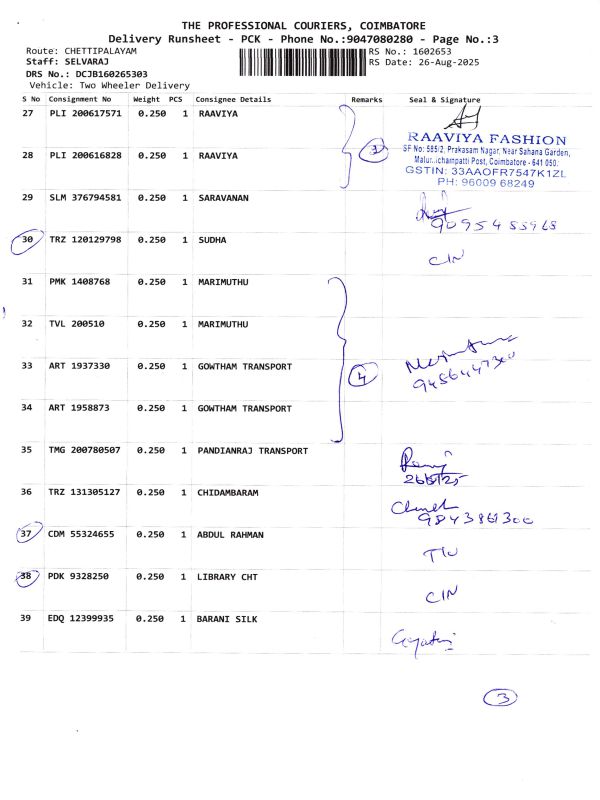 THE PROFESSIONAL COURIERS, COIMBATORE
Delivery Runsheet - PCK - Phone No.:9047080280 - Page No.:3
Route: CHETTIPALAYAM RS No.: 1602653
Staff: SELVARAJ RS Date: 26-Aug-2025
DRS No.: DCJB160265303
Vehicle: Two Wheeler Delivery
S No Consignment No Weight PCS Consignee Details Remarks Seal & Signature
27 PLI 200617571 0.250 1 RAAVIYA
RAAVIYA FASHION
SF No: 585/2, Prakasam Nagar, Near Sahana Garden,
28 PLI 200616828 0.250 1 RAAVIYA
Malumichampatti Post, Coimbatore - 641 050.
GSTIN: 33AAOFR7547K1ZL
PH: 96009 68249
29 SLM 376794581 0.250 1 SARAVANAN
30 TRZ 120129798 0.250 1 SUDHA
CIN
31 PMK 1408768 0.250 1 MARIMUTHU
32 TVL 200510 0.250 1 MARIMUTHU
33 ART 1937330 0.250 1 GOWTHAM TRANSPORT
4
34 ART 1958873 0.250 1 GOWTHAM TRANSPORT
35 TMG 200780507 0.250 1 PANDIANRAJ TRANSPORT
26/8/25
36 TRZ 131305127 0.250 1 CHIDAMBARAM
9843861300
37 CDM 55324655 0.250 1 ABDUL RAHMAN
38 PDK 9328250 0.250 1 LIBRARY CHT
CIN
39 EDQ 12399935 0.250 1 BARANI SILK
3